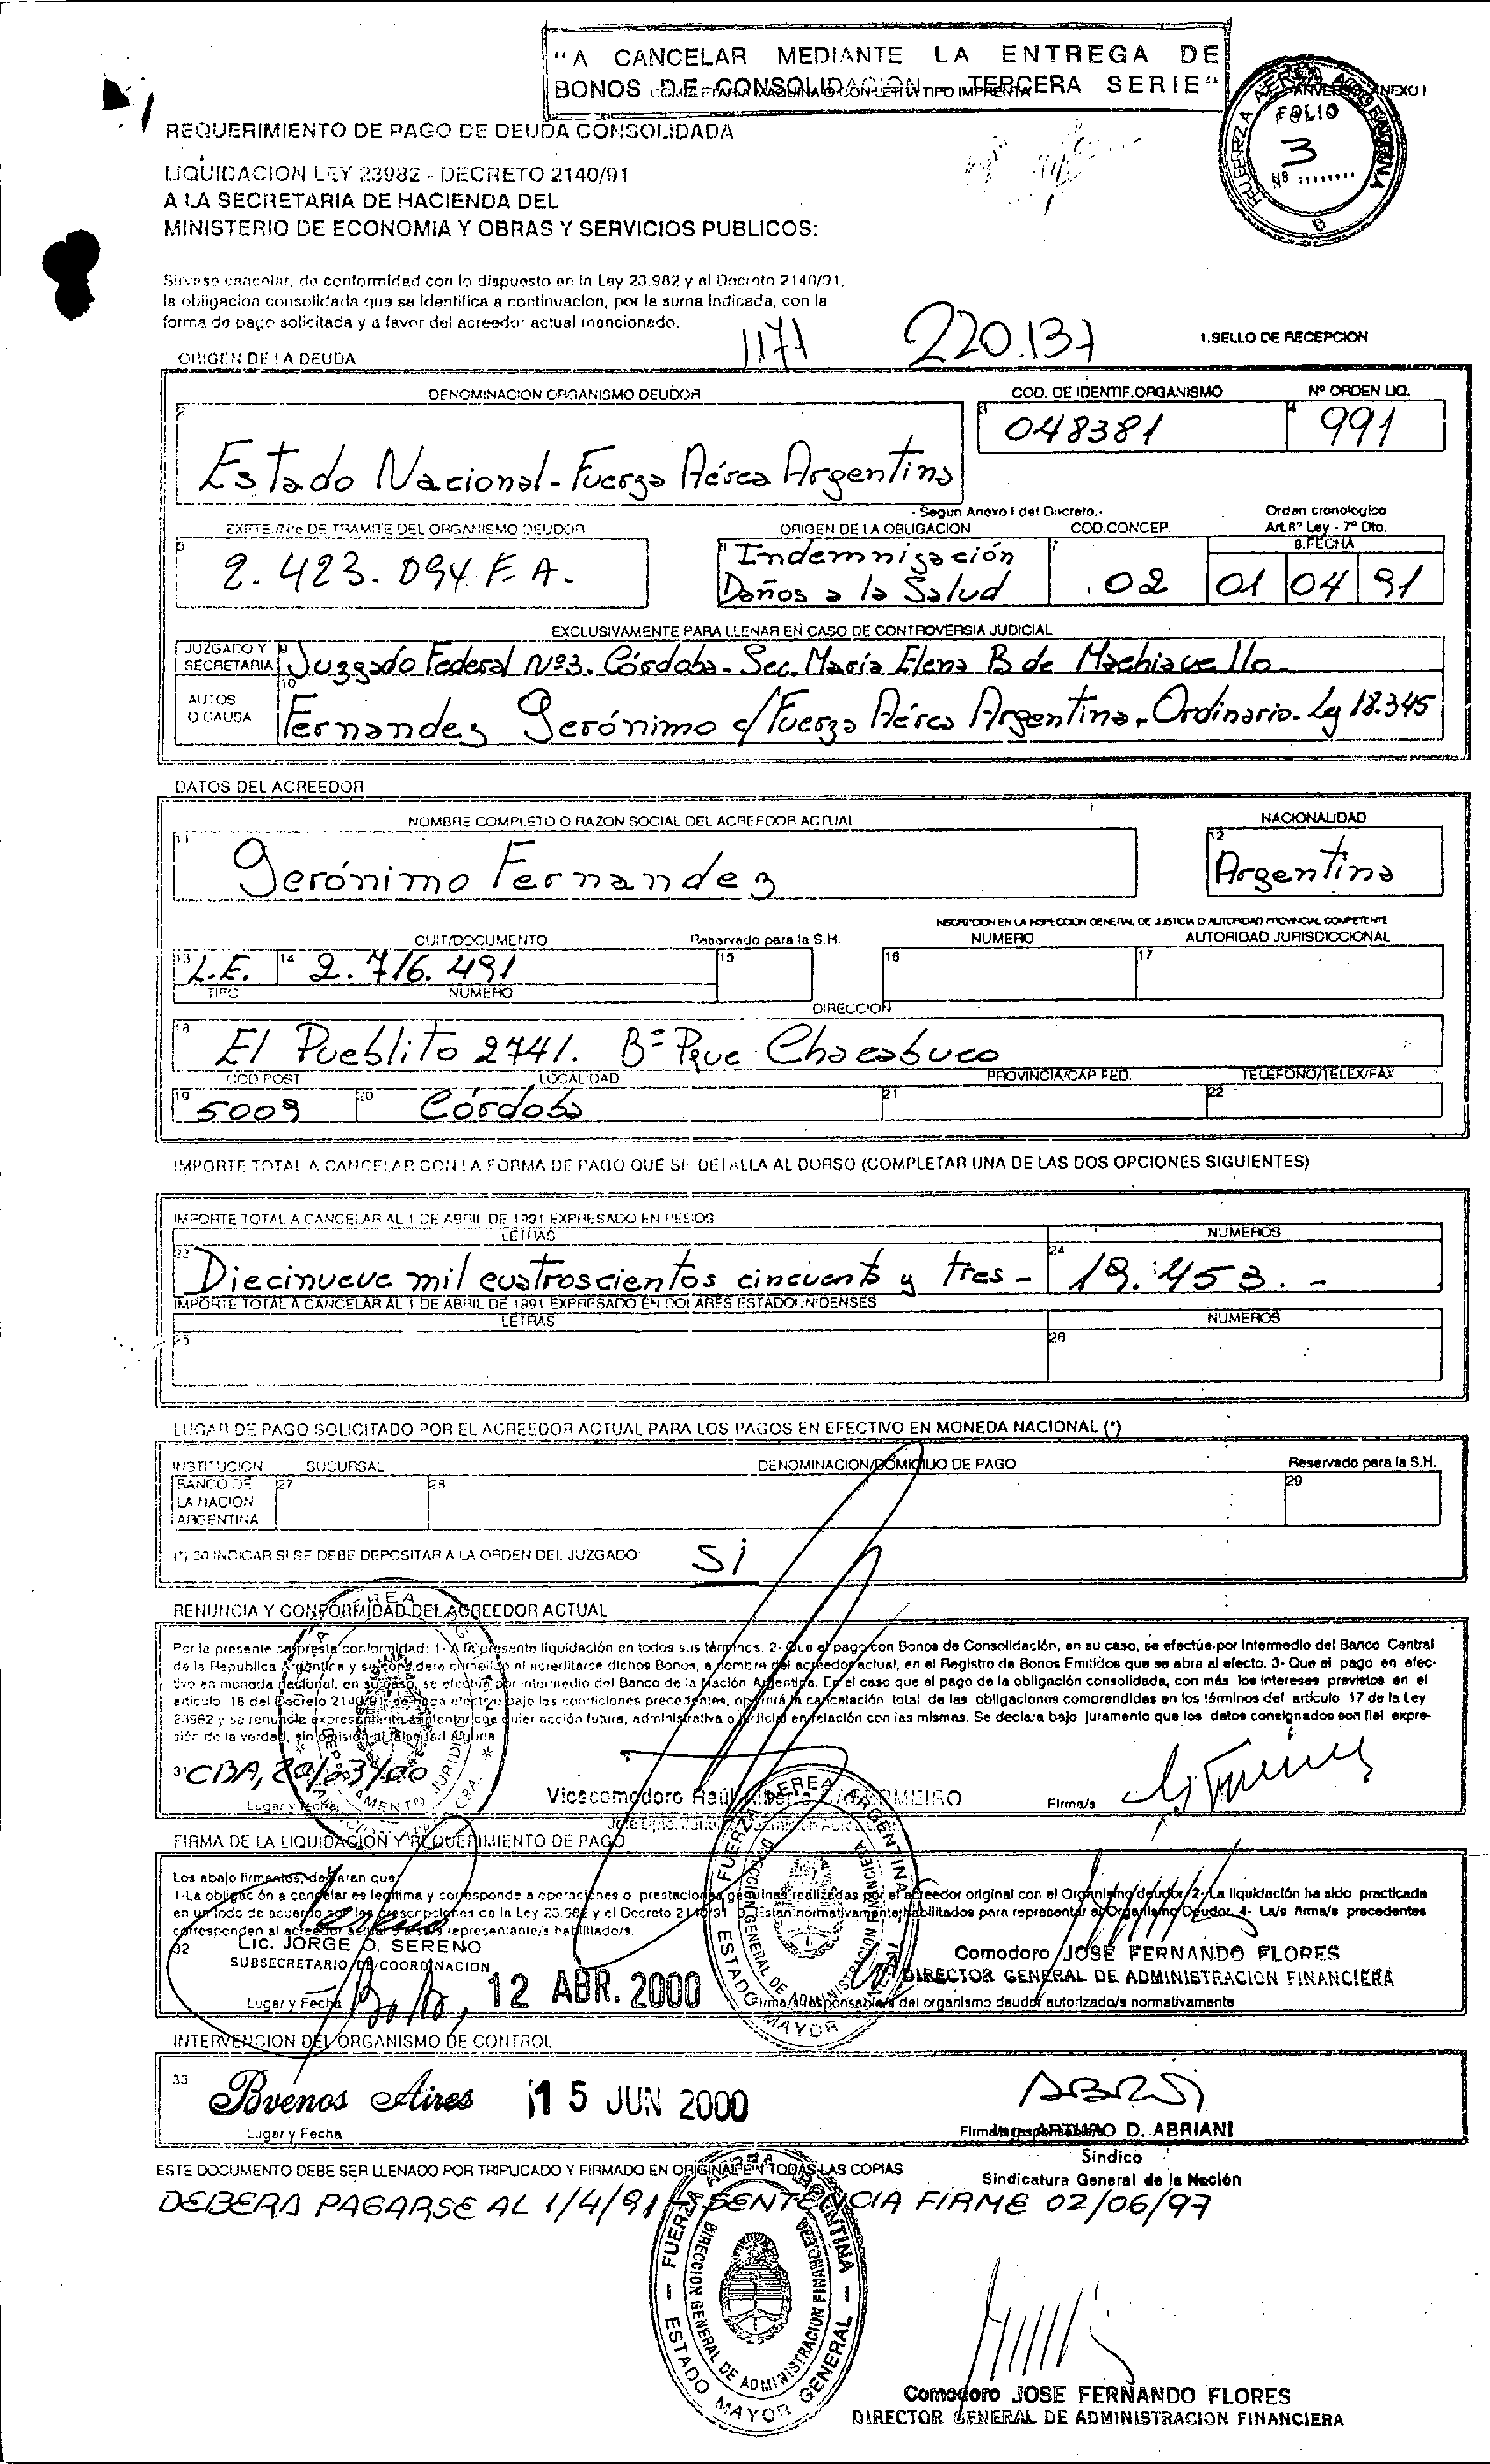 "A CANCELAR MEDIANTE LA ENTREGA DE
BONOS DE CONSOLIDACION TERCERA SERIE"
ANVERSO ANEXO I
FUERZA AEREA ARGENTINA
FOLIO
3
Nº ........
REQUERIMIENTO DE PAGO DE DEUDA CONSOLIDADA
LIQUIDACION LEY 23982 - DECRETO 2140/91
A LA SECRETARIA DE HACIENDA DEL
MINISTERIO DE ECONOMIA Y OBRAS Y SERVICIOS PUBLICOS:
Sirvase cancelar, de conformidad con lo dispuesto en la Ley 23.982 y el Decreto 2140/91,
la obligacion consolidada que se identifica a continuacion, por la suma indicada, con la
forma de pago solicitada y a favor del acreedor actual mencionado.
1171 220.137
1.SELLO DE RECEPCION
ORIGEN DE LA DEUDA
DENOMINACION ORGANISMO DEUDOR COD. DE IDENTIF.ORGANISMO Nº ORDEN LIQ.
2 Estado Nacional - Fuerza Aérea Argentina 3 048381 4 991
EXPTE./Nro DE TRAMITE DEL ORGANISMO DEUDOR
- Segun Anexo I del Decreto.-
ORIGEN DE LA OBLIGACION COD.CONCEP.
Orden cronologico
Art.8º Ley - 7º Dto.
8.FECHA
5 2.423.094 F.A. 6 Indemnización
Daños a la Salud 7 .02 01 04 91
EXCLUSIVAMENTE PARA LLENAR EN CASO DE CONTROVERSIA JUDICIAL
JUZGADO Y
SECRETARIA 9 Juzgado Federal Nº3. Córdoba - Sec. María Elena B de Machiavello
AUTOS
O CAUSA 10 Fernandez Gerónimo c/ Fuerza Aérea Argentina - Ordinario - Ley 18.345
DATOS DEL ACREEDOR
NOMBRE COMPLETO O RAZON SOCIAL DEL ACREEDOR ACTUAL NACIONALIDAD
11 Gerónimo Fernandez 12 Argentina
INSCRIPCION EN LA INSPECCION GENERAL DE JUSTICIA O AUTORIDAD PROVINCIAL COMPETENTE
CUIT/DOCUMENTO Reservado para la S.H. NUMERO AUTORIDAD JURISDICCIONAL
13 L.E. 14 2.716.491 15 16 17
TIPO NUMERO
DIRECCION
18 El Pueblito 2741. Bº Pque Chacabuco
COD POST LOCALIDAD PROVINCIA/CAP.FED. TELEFONO/TELEX/FAX
19 5009 20 Córdoba 21 22
IMPORTE TOTAL A CANCELAR CON LA FORMA DE PAGO QUE SE DETALLA AL DORSO (COMPLETAR UNA DE LAS DOS OPCIONES SIGUIENTES)
IMPORTE TOTAL A CANCELAR AL 1 DE ABRIL DE 1991 EXPRESADO EN PESOS
LETRAS NUMEROS
23 Diecinueve mil cuatroscientos cincuenta y tres - 24 19.453.-
IMPORTE TOTAL A CANCELAR AL 1 DE ABRIL DE 1991 EXPRESADO EN DOLARES ESTADOUNIDENSES
LETRAS NUMEROS
25 26
LUGAR DE PAGO SOLICITADO POR EL ACREEDOR ACTUAL PARA LOS PAGOS EN EFECTIVO EN MONEDA NACIONAL (*)
INSTITUCION SUCURSAL DENOMINACION/DOMICILIO DE PAGO Reservado para la S.H.
BANCO DE
LA NACION
ARGENTINA 27 28 29
(*) 30 INDICAR SI SE DEBE DEPOSITAR A LA ORDEN DEL JUZGADO: Si
RENUNCIA Y CONFORMIDAD DEL ACREEDOR ACTUAL
Por la presente se presta conformidad: 1- A la presente liquidación en todos sus términos. 2- Que el pago con Bonos de Consolidación, en su caso, se efectúe por intermedio del Banco Central
de la Republica Argentina y se considere cumplido al acreditarse dichos Bonos, a nombre del acreedor actual, en el Registro de Bonos Emitidos que se abra al efecto. 3- Que el pago en efec-
tivo en moneda nacional, en su caso, se efectúe por intermedio del Banco de la Nación Argentina. En el caso que el pago de la obligación consolidada, con más los intereses previstos en el
artículo 18 del Decreto 2140/91 se haga efectivo bajo las condiciones precedentes, operará la cancelación total de las obligaciones comprendidas en los términos del artículo 17 de la Ley
23982 y se renuncia expresamente a intentar cualquier acción futura, administrativa o judicial en relación con las mismas. Se declara bajo juramento que los datos consignados son fiel expre-
sión de la verdad, sin omisión ni falsedad alguna.
31 CBA, 20/03/00
Lugar y fecha
Vicecomodoro Raúl
Firma/s
FIRMA DE LA LIQUIDACION Y REQUERIMIENTO DE PAGO
Los abajo firmantes, declaran que:
1-La obligación a cancelar es legítima y corresponde a operaciones o prestaciones genuinas realizadas por el acreedor original con el Organismo deudor. 2- La liquidación ha sido practicada
en un todo de acuerdo con las prescripciones de la Ley 23.982 y el Decreto 2140/91. 3- Estan normativamente habilitados para representar al Organismo Deudor. 4- La/s firma/s precedentes
corresponden al acreedor actual o a su/s representante/s habilitado/s.
32
LIC. JORGE O. SERENO
SUBSECRETARIO DE COORDINACION
Lugar y Fecha
12 ABR. 2000
Comodoro JOSE FERNANDO FLORES
DIRECTOR GENERAL DE ADMINISTRACION FINANCIERA
Firma/s responsable/s del organismo deudor autorizado/s normativamente
FUERZA AEREA ARGENTINA
DIRECCION GENERAL DE ADMINISTRACION FINANCIERA
ESTADO MAYOR
INTERVENCION DEL ORGANISMO DE CONTROL
33 Buenos Aires 15 JUN 2000
Lugar y Fecha
ARTURO D. ABRIANI
Síndico
Sindicatura General de la Nación
ESTE DOCUMENTO DEBE SER LLENADO POR TRIPLICADO Y FIRMADO EN ORIGINAL EN TODAS LAS COPIAS
DEBERA PAGARSE AL 1/4/91 SENTENCIA FIRME 02/06/97
FUERZA AEREA ARGENTINA
DIRECCION GENERAL DE ADMINISTRACION FINANCIERA
ESTADO MAYOR GENERAL
Comodoro JOSE FERNANDO FLORES
DIRECTOR GENERAL DE ADMINISTRACION FINANCIERA